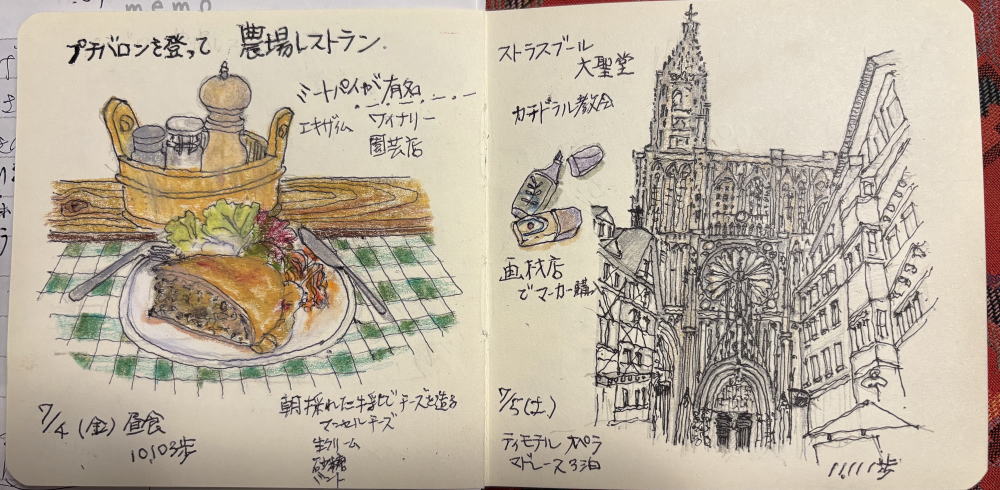 memo
プチバロンを登って 農場レストラン.
ミートパイが有名
エキザイム ワイナリー
園芸店
7/4(金)昼食
10,103歩
朝採れた牛乳でチーズを造る
マンセルチーズ
生クリーム
砂糖
ストラスブール
大聖堂
カテドラル教会
画材店
でマーカー購入
7/5(土)
ティモテル オペラ
マドレーヌ3泊
11,111歩